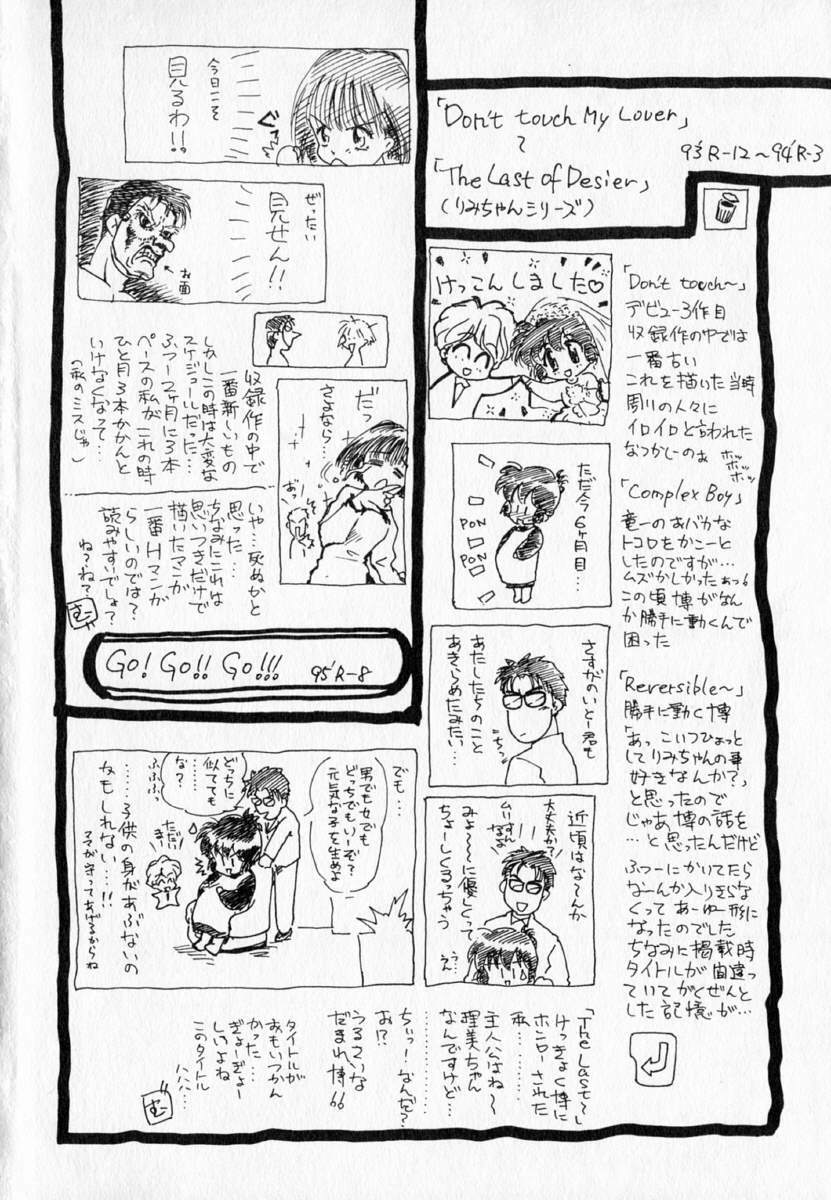 「Don't touch My Lover」
〜
「The Last of Desier」
(りみちゃんシリーズ)
93'R-12〜94'R-3
「Don't touch〜」
デビュー3作目
収録作の中では
一番古い
これを描いた当時
周りの人々に
イロイロと言われた
なつかしーのぉ
ホッ
ホッ
ホッ
「Complex Boy」
竜一のおバカな
トコロをかこーと
したのですが…
ムズかしかったぁっ。
この頃博がなん
か勝手に動くんで
困った
「Reversible〜」
勝手に動く博
「あっこいつひょっと
してりみちゃんの事
好きなんか?」
と思ったので
じゃあ博の話を
…と思ったんだけど
ふつーにかいてたら
なーんか入りきらな
くってあーゆー形に
なったのでした
ちなみに掲載時
タイトルが間違っ
ていてがくぜんと
した記憶が…
けっこんしました♡
ただ今6ヶ月目…
PON
PON
さすがのいとー君も
あたしたちのこと
あきらめたみたい…
近頃はな〜んか
みょ〜〜に優しくって
ちょーしくるっちゃう
大丈夫か?
ムリすん
なよ
う…
うん
でも…
男でも女でも
どっちでもいーぞ?
元気な子を生めよ
どっちに
似てても
な?
ふふふっ
ただい
まー
……子供の身があぶないの
かもしれない…!!
ママが守ってあげるからね
「The Last〜」
けっきょく博に
ホンローされた
私……
主人公はね〜
理美ちゃん
なんですけど…
ちぃっーなんだ?
お!?
うるさいな
だまれ博。。
タイトルが
おもいつかん
かった…
ぎょーぎょー
しいよね
このタイトル
ハハハ…
今日こそ
見るわ!!
ぜったい
見せん!!
お面
だっ
さよなら…
収録作の中で
一番新しいもの
しかしこの時は大変な
スケジュールだった…
ふつー2ヶ月に3本
ペースの私がこれの時
ひと月3本かかんと
いけなくなって…
(私のミスじゃ)
いや…死ぬかと
思った…
ちなみにこれは
思いつきだけで
描いたマンガ
一番Hマンガ
らしいのでは?
読みやすいでしょ?
ね?ね?
Go! Go!! Go!!! 95'R-8